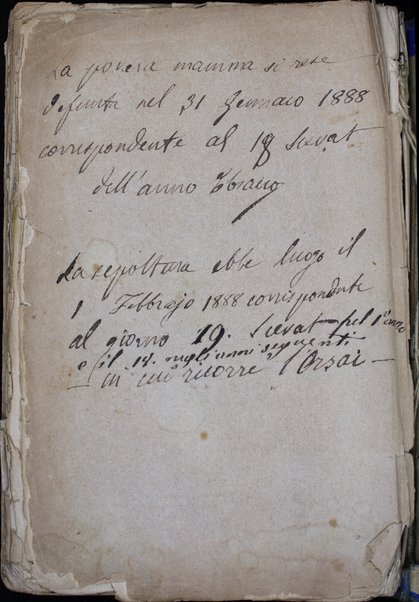 La povera mamma si rese
defunta nel 31 Gennaio 1888
corrispondente al 18 Scevat
dell'anno Ebraico
La sepoltura ebbe luogo il
1 Febbrajo 1888 corrispondente
al giorno 19. Scevat pel 1º anno
e (il 18. negli anni seguenti
— in cui ricorre l'Orsai —